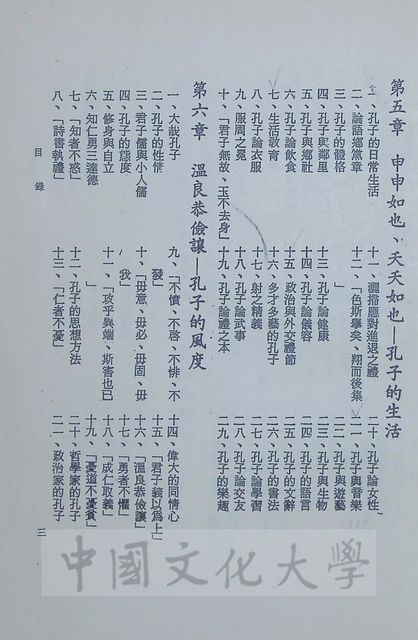 第五章　申申如也、夭夭如也─孔子的生活
一、孔子的日常生活
二、論語鄉黨章
三、孔子的體格
四、孔子與鄰里
五、孔子與鄉社
六、孔子論飲食
七、生活教育
八、孔子論衣服
九、服周之冕
十、「君子無故、玉不去身」
十一、灑掃應對進退之禮
十二、「色斯舉矣、翔而後集
」
十三、孔子論健康
十四、孔子論儀容
十五、政治與外交禮節
十六、多才多藝的孔子
十七、射之精義
十八、孔子論武事
十九、孔子論禮之本
二十、孔子論女性
二一、孔子與音樂
二二、孔子與遊藝
二三、孔子與生物
二四、孔子的語言
二五、孔子的文辭
二六、孔子的書法
二七、孔子論學習
二八、孔子論交友
二九、孔子的樂趣
第六章　溫良恭儉讓─孔子的風度
一、大哉孔子
二、孔子的性情
三、君子儒與小人儒
四、孔子的態度
五、修身與自立
六、知仁勇三達德
七、「知者不惑」
八、「詩書執禮」
九、「不憤、不啓、不悱、不
發」
十、「毋意、毋必、毋固、毋
我」
十一、「攻乎異端、斯害也已
」
十二、孔子的思想方法
十三、「仁者不憂」
十四、偉大的同情心
十五、「君子義以爲上」
十六、「溫良恭儉讓」
十七、「勇者不懼」
十八、「成仁取義」
十九、「憂道不憂貧」
二十、哲學家的孔子
二一、政治家的孔子
目錄
三
中國文化大學